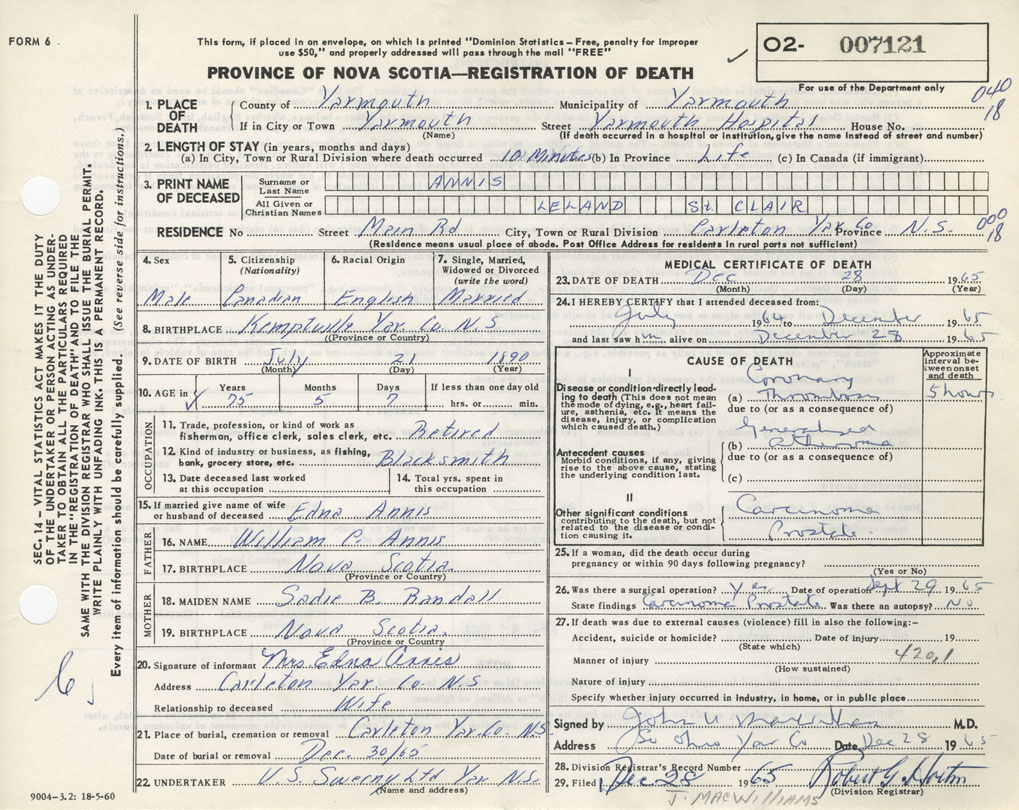 FORM 6
This form, if placed in an envelope, on which is printed "Dominion Statistics – Free, penalty for improper
use $50," and properly addressed will pass through the mail "FREE"
O2- 007121
For use of the Department only
PROVINCE OF NOVA SCOTIA—REGISTRATION OF DEATH
040
18
1. PLACE OF DEATH
County of Yarmouth Municipality of Yarmouth
If in City or Town Yarmouth Street Yarmouth Hospital House No.
(Name) (If death occurred in a hospital or institution, give the name instead of street and number)
2. LENGTH OF STAY (in years, months and days)
(a) In City, Town or Rural Division where death occurred 10 Minutes (b) In Province Life (c) In Canada (if immigrant)
3. PRINT NAME OF DECEASED
Surname or Last Name ANNIS
All Given or Christian Names LELAND St. CLAIR
RESIDENCE No Street Main Rd City, Town or Rural Division Carleton Yar Co. Province N.S.
000
18
(Residence means usual place of abode. Post Office Address for residents in rural parts not sufficient)
4. Sex
Male
5. Citizenship
(Nationality)
Canadian
6. Racial Origin
English
7. Single, Married,
Widowed or Divorced
(write the word)
Married
8. BIRTHPLACE Kemptville Yar. Co. N.S
(Province or Country)
9. DATE OF BIRTH July 21 1890
(Month) (Day) (Year)
10. AGE in
Years Months Days If less than one day old
75 5 7 hrs. or min.
OCCUPATION
11. Trade, profession, or kind of work as
fisherman, office clerk, sales clerk, etc. Retired
12. Kind of industry or business, as fishing,
bank, grocery store, etc. Blacksmith
13. Date deceased last worked
at this occupation
14. Total yrs. spent in
this occupation
15. If married give name of wife
or husband of deceased Edna Annis
FATHER
16. NAME William C. Annis
17. BIRTHPLACE Nova Scotia
(Province or Country)
MOTHER
18. MAIDEN NAME Sadie B. Randall
19. BIRTHPLACE Nova Scotia
(Province or Country)
20. Signature of informant Mrs Edna Annis
Address Carleton Yar. Co. N.S
Relationship to deceased Wife
21. Place of burial, cremation or removal Carleton Yar. Co. NS
Date of burial or removal Dec. 30/65
22. UNDERTAKER V.S. Sweeny Ltd Yar. N.S.
(Name and address)
MEDICAL CERTIFICATE OF DEATH
23. DATE OF DEATH Dec 28 1965
(Month) (Day) (Year)
24. I HEREBY CERTIFY that I attended deceased from:
July 1964 to December 1965
and last saw h im alive on December 28 1965
CAUSE OF DEATH
Approximate
interval be-
tween onset
and death
I
Disease or condition directly lead-
ing to death (This does not mean
the mode of dying, e.g., heart fail-
ure, asthenia, etc. It means the
disease, injury, or complication
which caused death.)
Coronary
(a) Thrombosis 5 hours
due to (or as a consequence of)
Generalised
(b)
due to (or as a consequence of)
(c)
Antecedent causes
Morbid conditions, if any, giving
rise to the above cause, stating
the underlying condition last.
II
Other significant conditions
contributing to the death, but not
related to the disease or condi-
tion causing it.
Carcinoma
Prostate.
25. If a woman, did the death occur during
pregnancy or within 90 days following pregnancy?
(Yes or No)
26. Was there a surgical operation? Yes Date of operation Sept 29 1965
State findings Carcinoma Prostate Was there an autopsy? No
27. If death was due to external causes (violence) fill in also the following:-
Accident, suicide or homicide? Date of injury 19
(State which)
Manner of injury 420.1
(How sustained)
Nature of injury
Specify whether injury occurred in industry, in home, or in public place
Signed by John M.D.
Address Yar Co Date Dec 28 1965
28. Division Registrar's Record Number
29. Filed Dec 28 1965 Robert G. Horton
(Division Registrar)
J. MACWILLIAMS
SEC. 14 – VITAL STATISTICS ACT MAKES IT THE DUTY
OF THE UNDERTAKER OR PERSON ACTING AS UNDER-
TAKER TO OBTAIN ALL THE PARTICULARS REQUIRED
IN THE "REGISTRATION OF DEATH" AND TO FILE THE
SAME WITH THE DIVISION REGISTRAR WHO SHALL ISSUE THE BURIAL PERMIT.
WRITE PLAINLY WITH UNFADING INK. THIS IS A PERMANENT RECORD.
Every item of information should be carefully supplied. (See reverse side for instructions.)
9004-3.2: 18-5-60